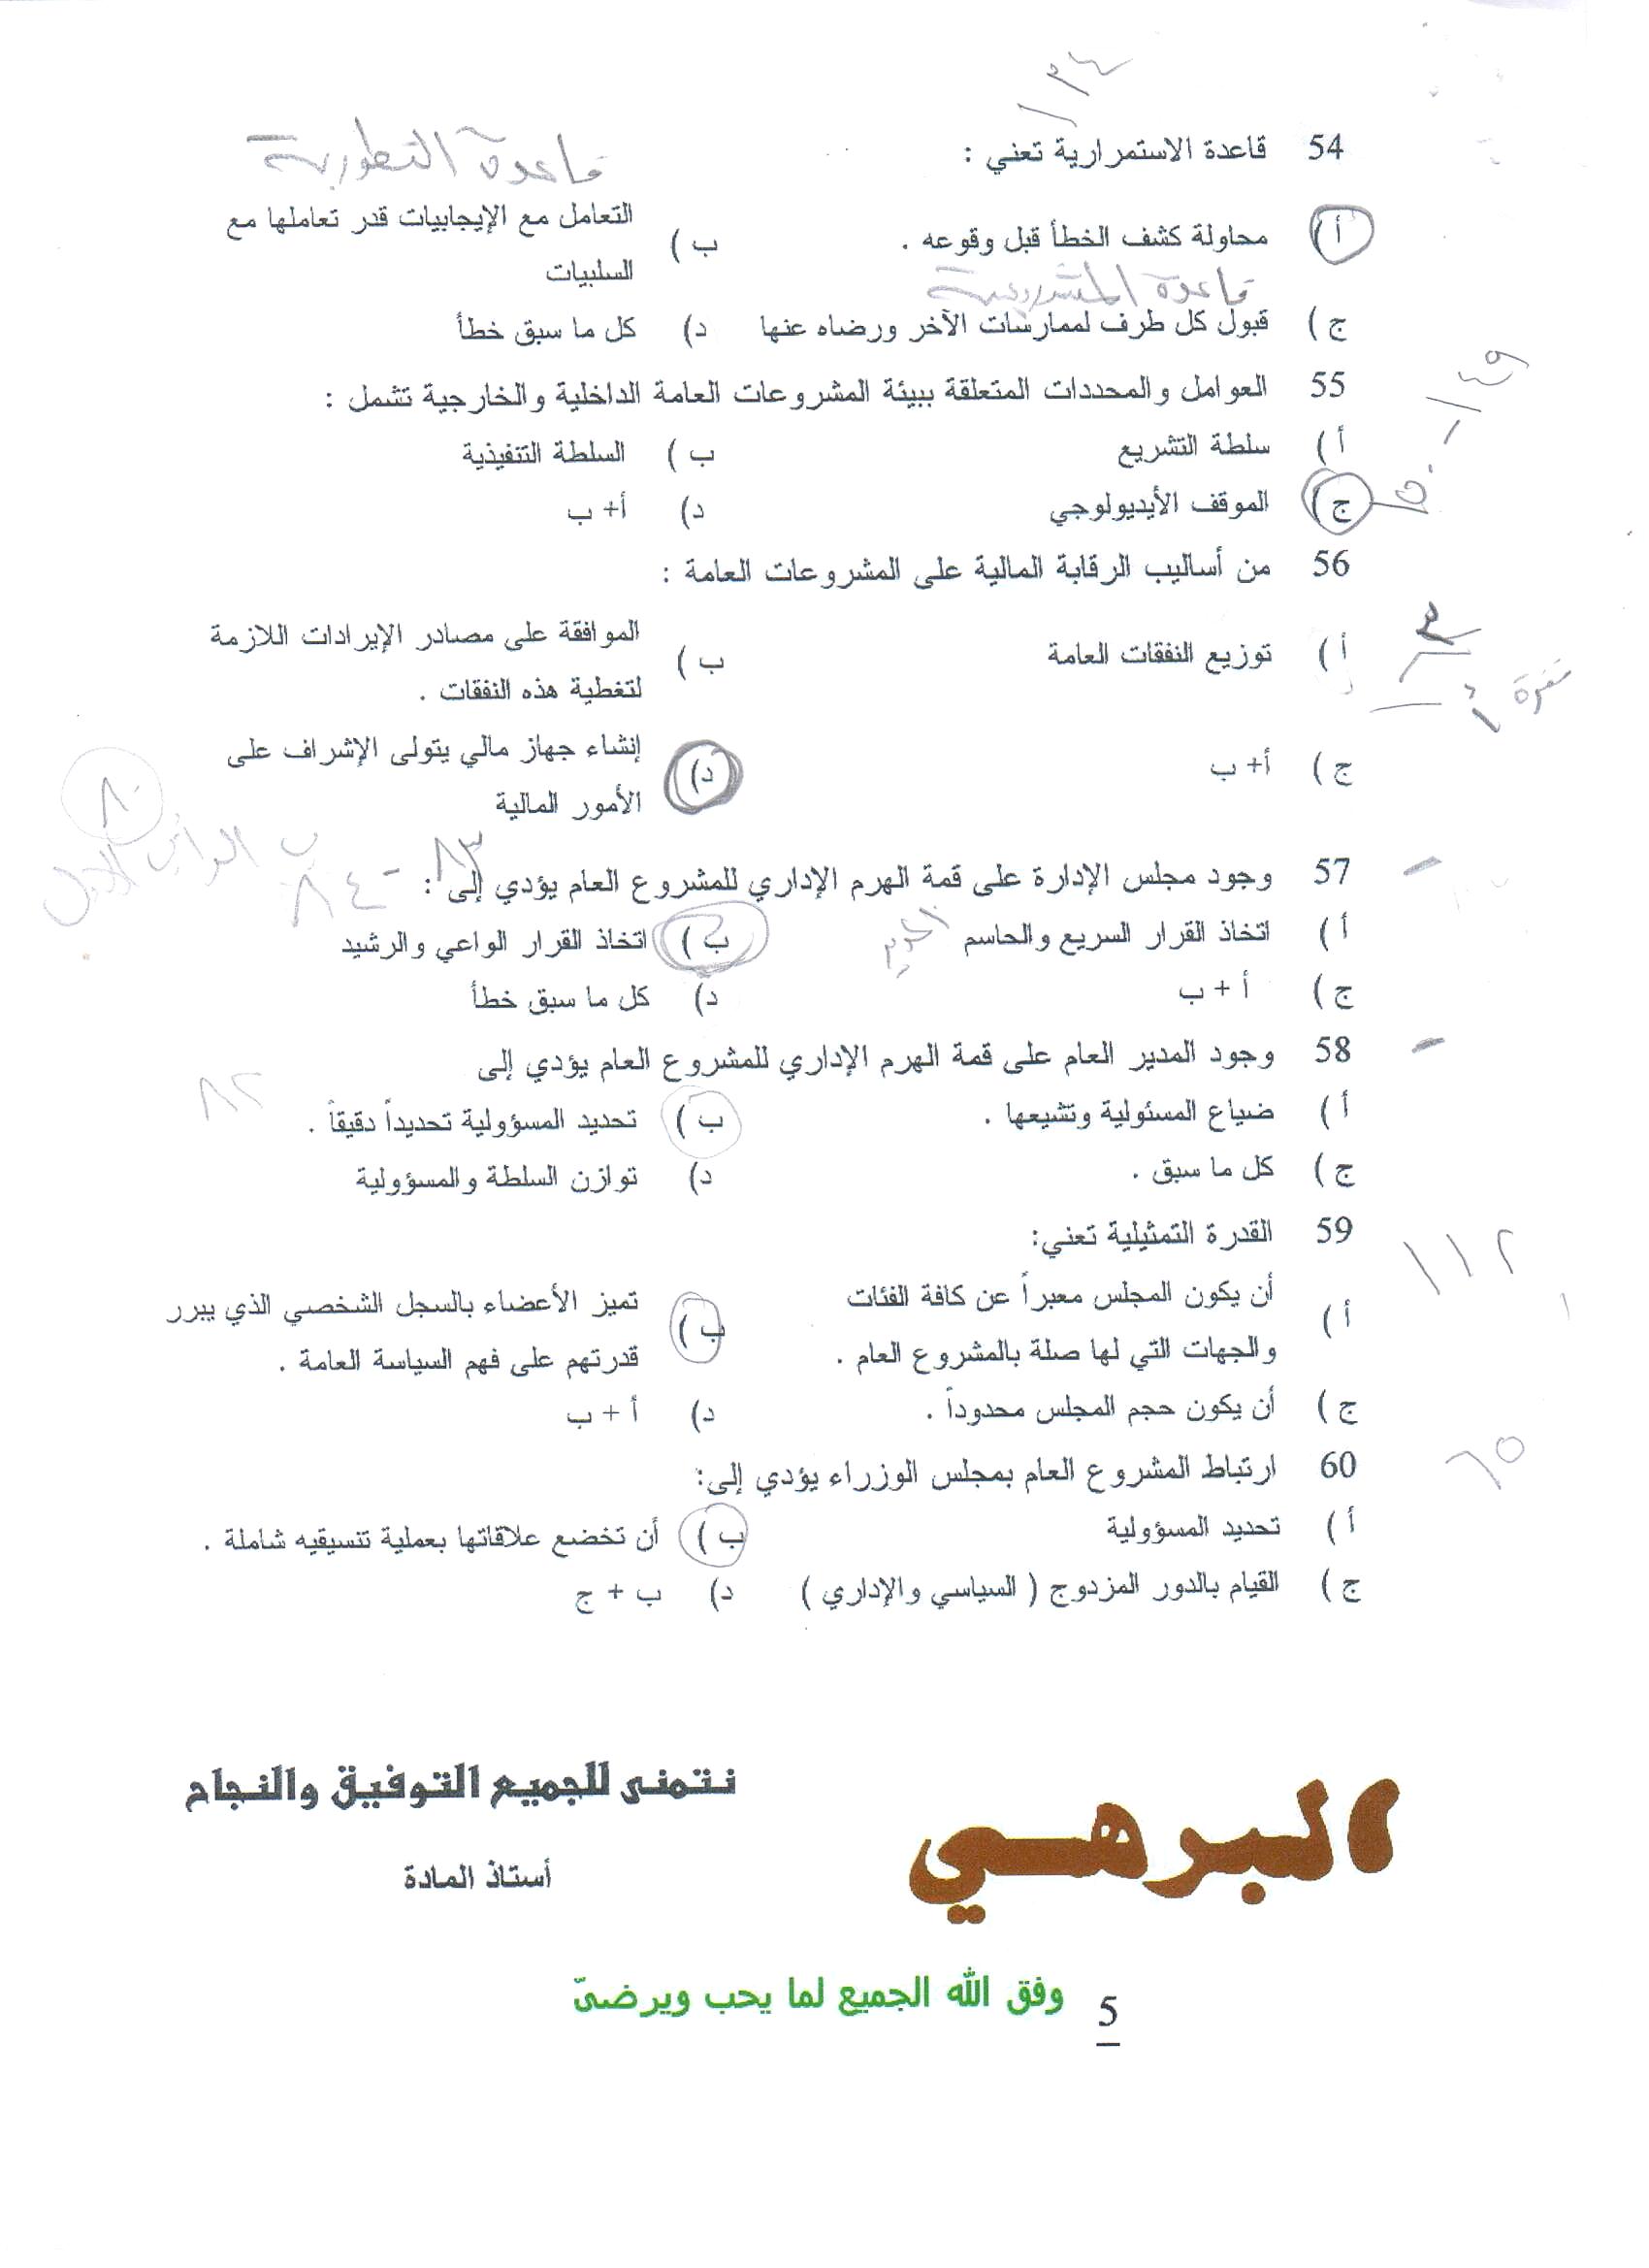 ١٣٤
54 قاعدة الاستمرارية تعني :
قاعدة التطورية
أ ) محاولة كشف الخطأ قبل وقوعه .
ب ) التعامل مع الإيجابيات قدر تعاملها مع
السلبيات
قاعدة المشروعية
ج ) قبول كل طرف لممارسات الآخر ورضاه عنها
د) كل ما سبق خطأ
55 العوامل والمحددات المتعلقة ببيئة المشروعات العامة الداخلية والخارجية تشمل :
أ ) سلطة التشريع
ب ) السلطة التنفيذية
ج ) الموقف الأيديولوجي
د) أ+ ب
56 من أساليب الرقابة المالية على المشروعات العامة :
أ ) توزيع النفقات العامة
ب ) الموافقة على مصادر الإيرادات اللازمة
لتغطية هذه النفقات .
فقرة
ج ) أ+ ب
د) إنشاء جهاز مالي يتولى الإشراف على
الأمور المالية
٨٠
57 وجود مجلس الإدارة على قمة الهرم الإداري للمشروع العام يؤدي إلى :
٨٣ - ٨٤
أ ) اتخاذ القرار السريع والحاسم
ب ) اتخاذ القرار الواعي والرشيد
ج ) أ + ب
د) كل ما سبق خطأ
58 وجود المدير العام على قمة الهرم الإداري للمشروع العام يؤدي إلى
٨٢
أ ) ضياع المسئولية وتشيعها .
ب ) تحديد المسؤولية تحديداً دقيقاً .
ج ) كل ما سبق .
د) توازن السلطة والمسؤولية
59 القدرة التمثيلية تعني:
١١٢
أ ) أن يكون المجلس معبراً عن كافة الفئات
والجهات التي لها صلة بالمشروع العام .
ب ) تميز الأعضاء بالسجل الشخصي الذي يبرر
قدرتهم على فهم السياسة العامة .
ج ) أن يكون حجم المجلس محدوداً .
د) أ + ب
60 ارتباط المشروع العام بمجلس الوزراء يؤدي إلى:
٦٥
أ ) تحديد المسؤولية
ب ) أن تخضع علاقاتها بعملية تنسيقيه شاملة .
ج ) القيام بالدور المزدوج ( السياسي والإداري )
د) ب + ج
نتمنى للجميع التوفيق والنجاح
البرهي
أستاذ المادة
وفق الله الجميع لما يحب ويرضىّ
5